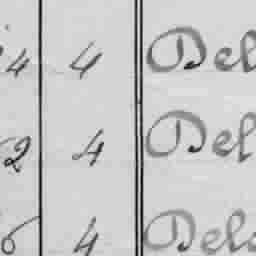 4 4 Del
2 4 Del
6 4 Del